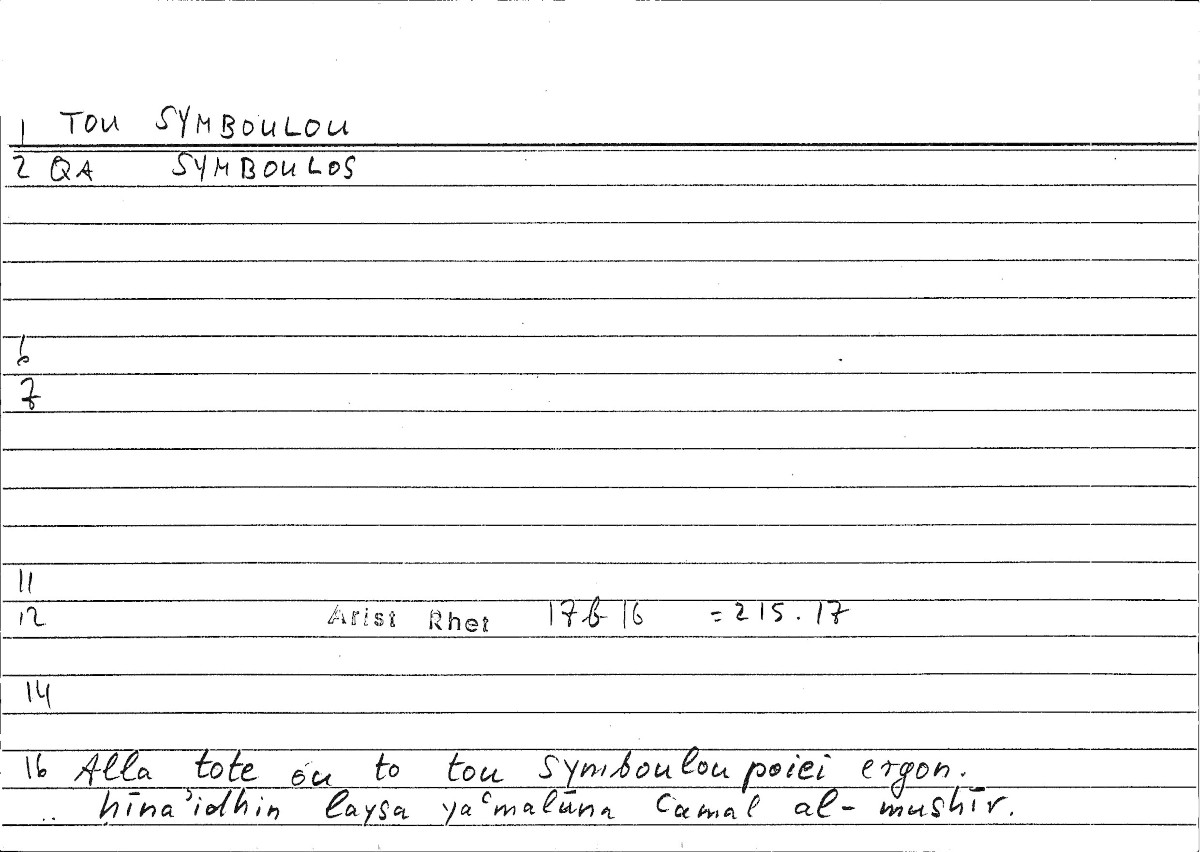 1 TOU SYMBOULOU
2 QA SYMBOULOS
6
7
11
12 Arist Rhet 17b16 = 215.17
14
16 Alla tote ou to tou symboulou poiei ergon.
.. hīna'idhin laysa yaʿmalūna ʿamal al-mushīr.